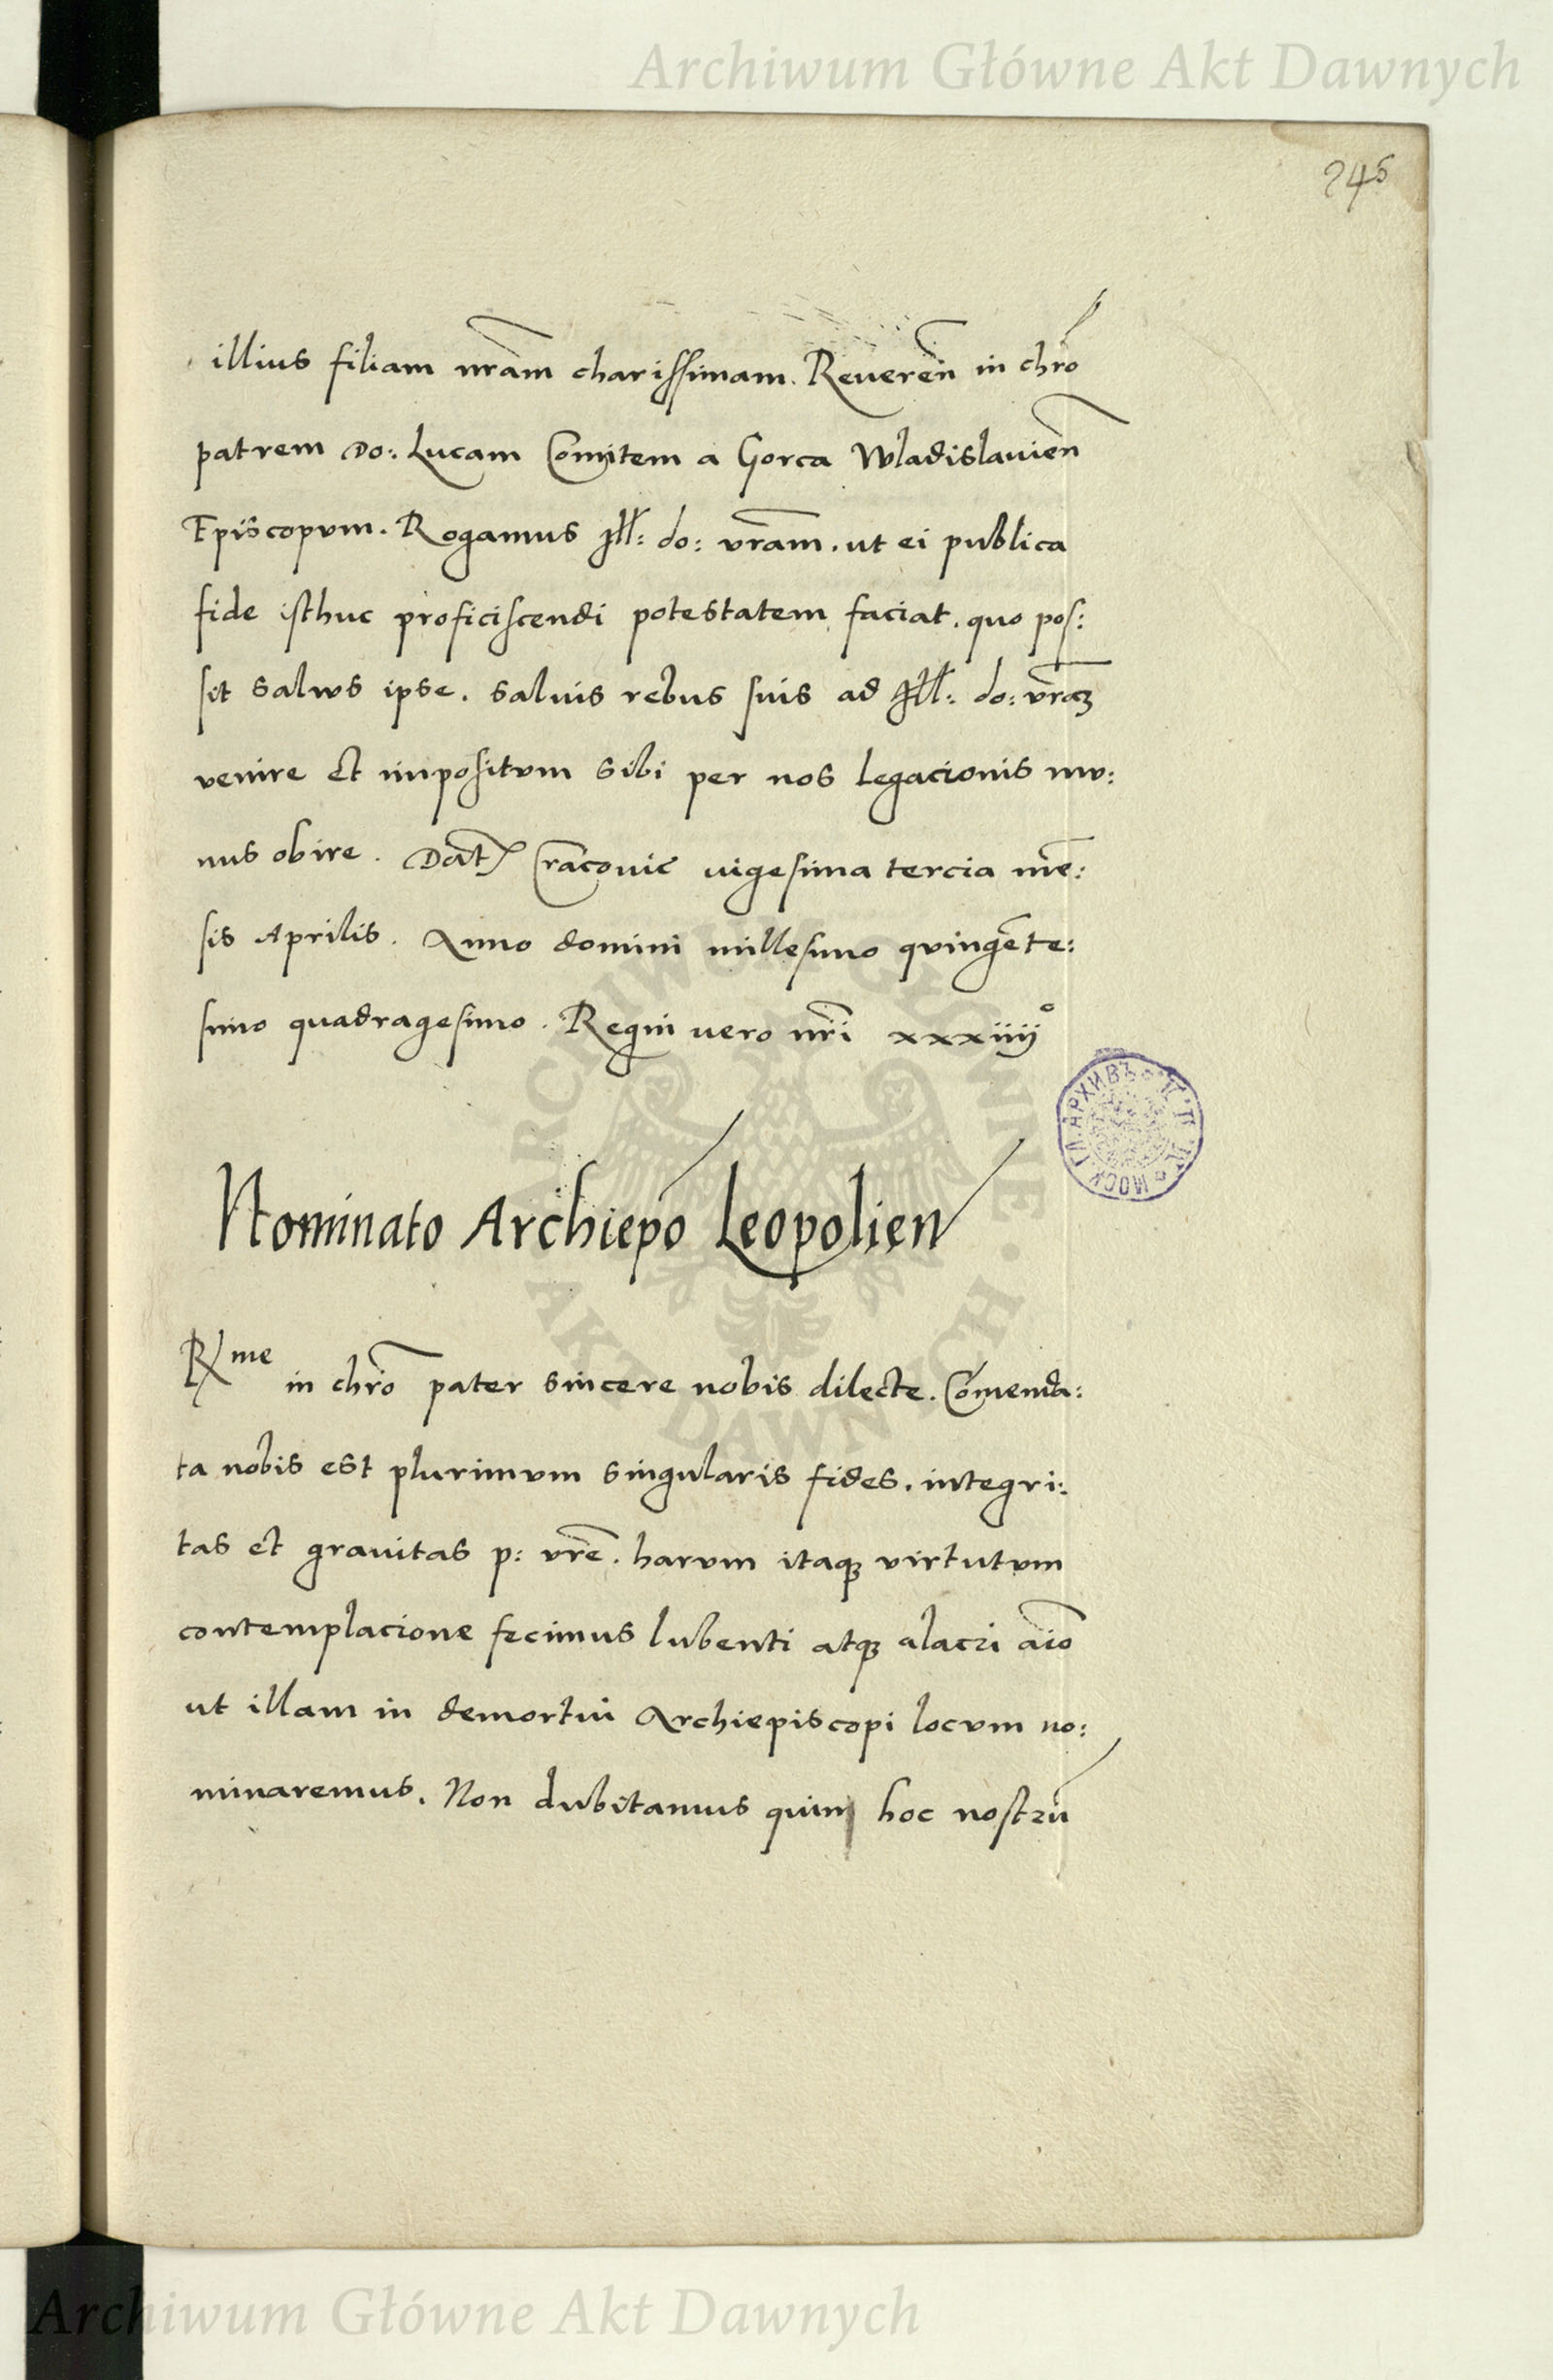 Archiwum Główne Akt Dawnych
245
illius filiam nr̃am charissimam. Reueren̄ in chr̃o
patrem Do: Lucam Comitem a Gorca Wladislauien̄
Episcopum. Rogamus Ill: do: vr̃am. ut ei publica
fide isthuc proficiscendi potestatem faciat. quo pos:
sit salvus ipse. salvis rebus suis ad Ill: do: vr̃aꝫ
venire et impositum sibi per nos legacionis mu:
nus obire. Dat Cracovie vigesima tercia mẽ:
sis Aprilis. Anno domini millesimo quingẽte:
simo quadragesimo. Regni vero nr̃i xxxiiijº
Nominato Archiepo Leopolien
Rme in chr̃o pater sincere nobis dilecte. Com̃enda:
ta nobis est plurimum singularis fides. integri:
tas et gravitas p: vr̃e. harum itaqꝫ virtutum
contemplacione fecimus lubenti atqꝫ alacri aĩo
ut illam in demortui Archiepiscopi locum no:
minaremus. Non dubitamus quin hoc nostrũ
ARCHIWUM GŁÓWNE · AKT DAWNYCH
Archiwum Główne Akt Dawnych